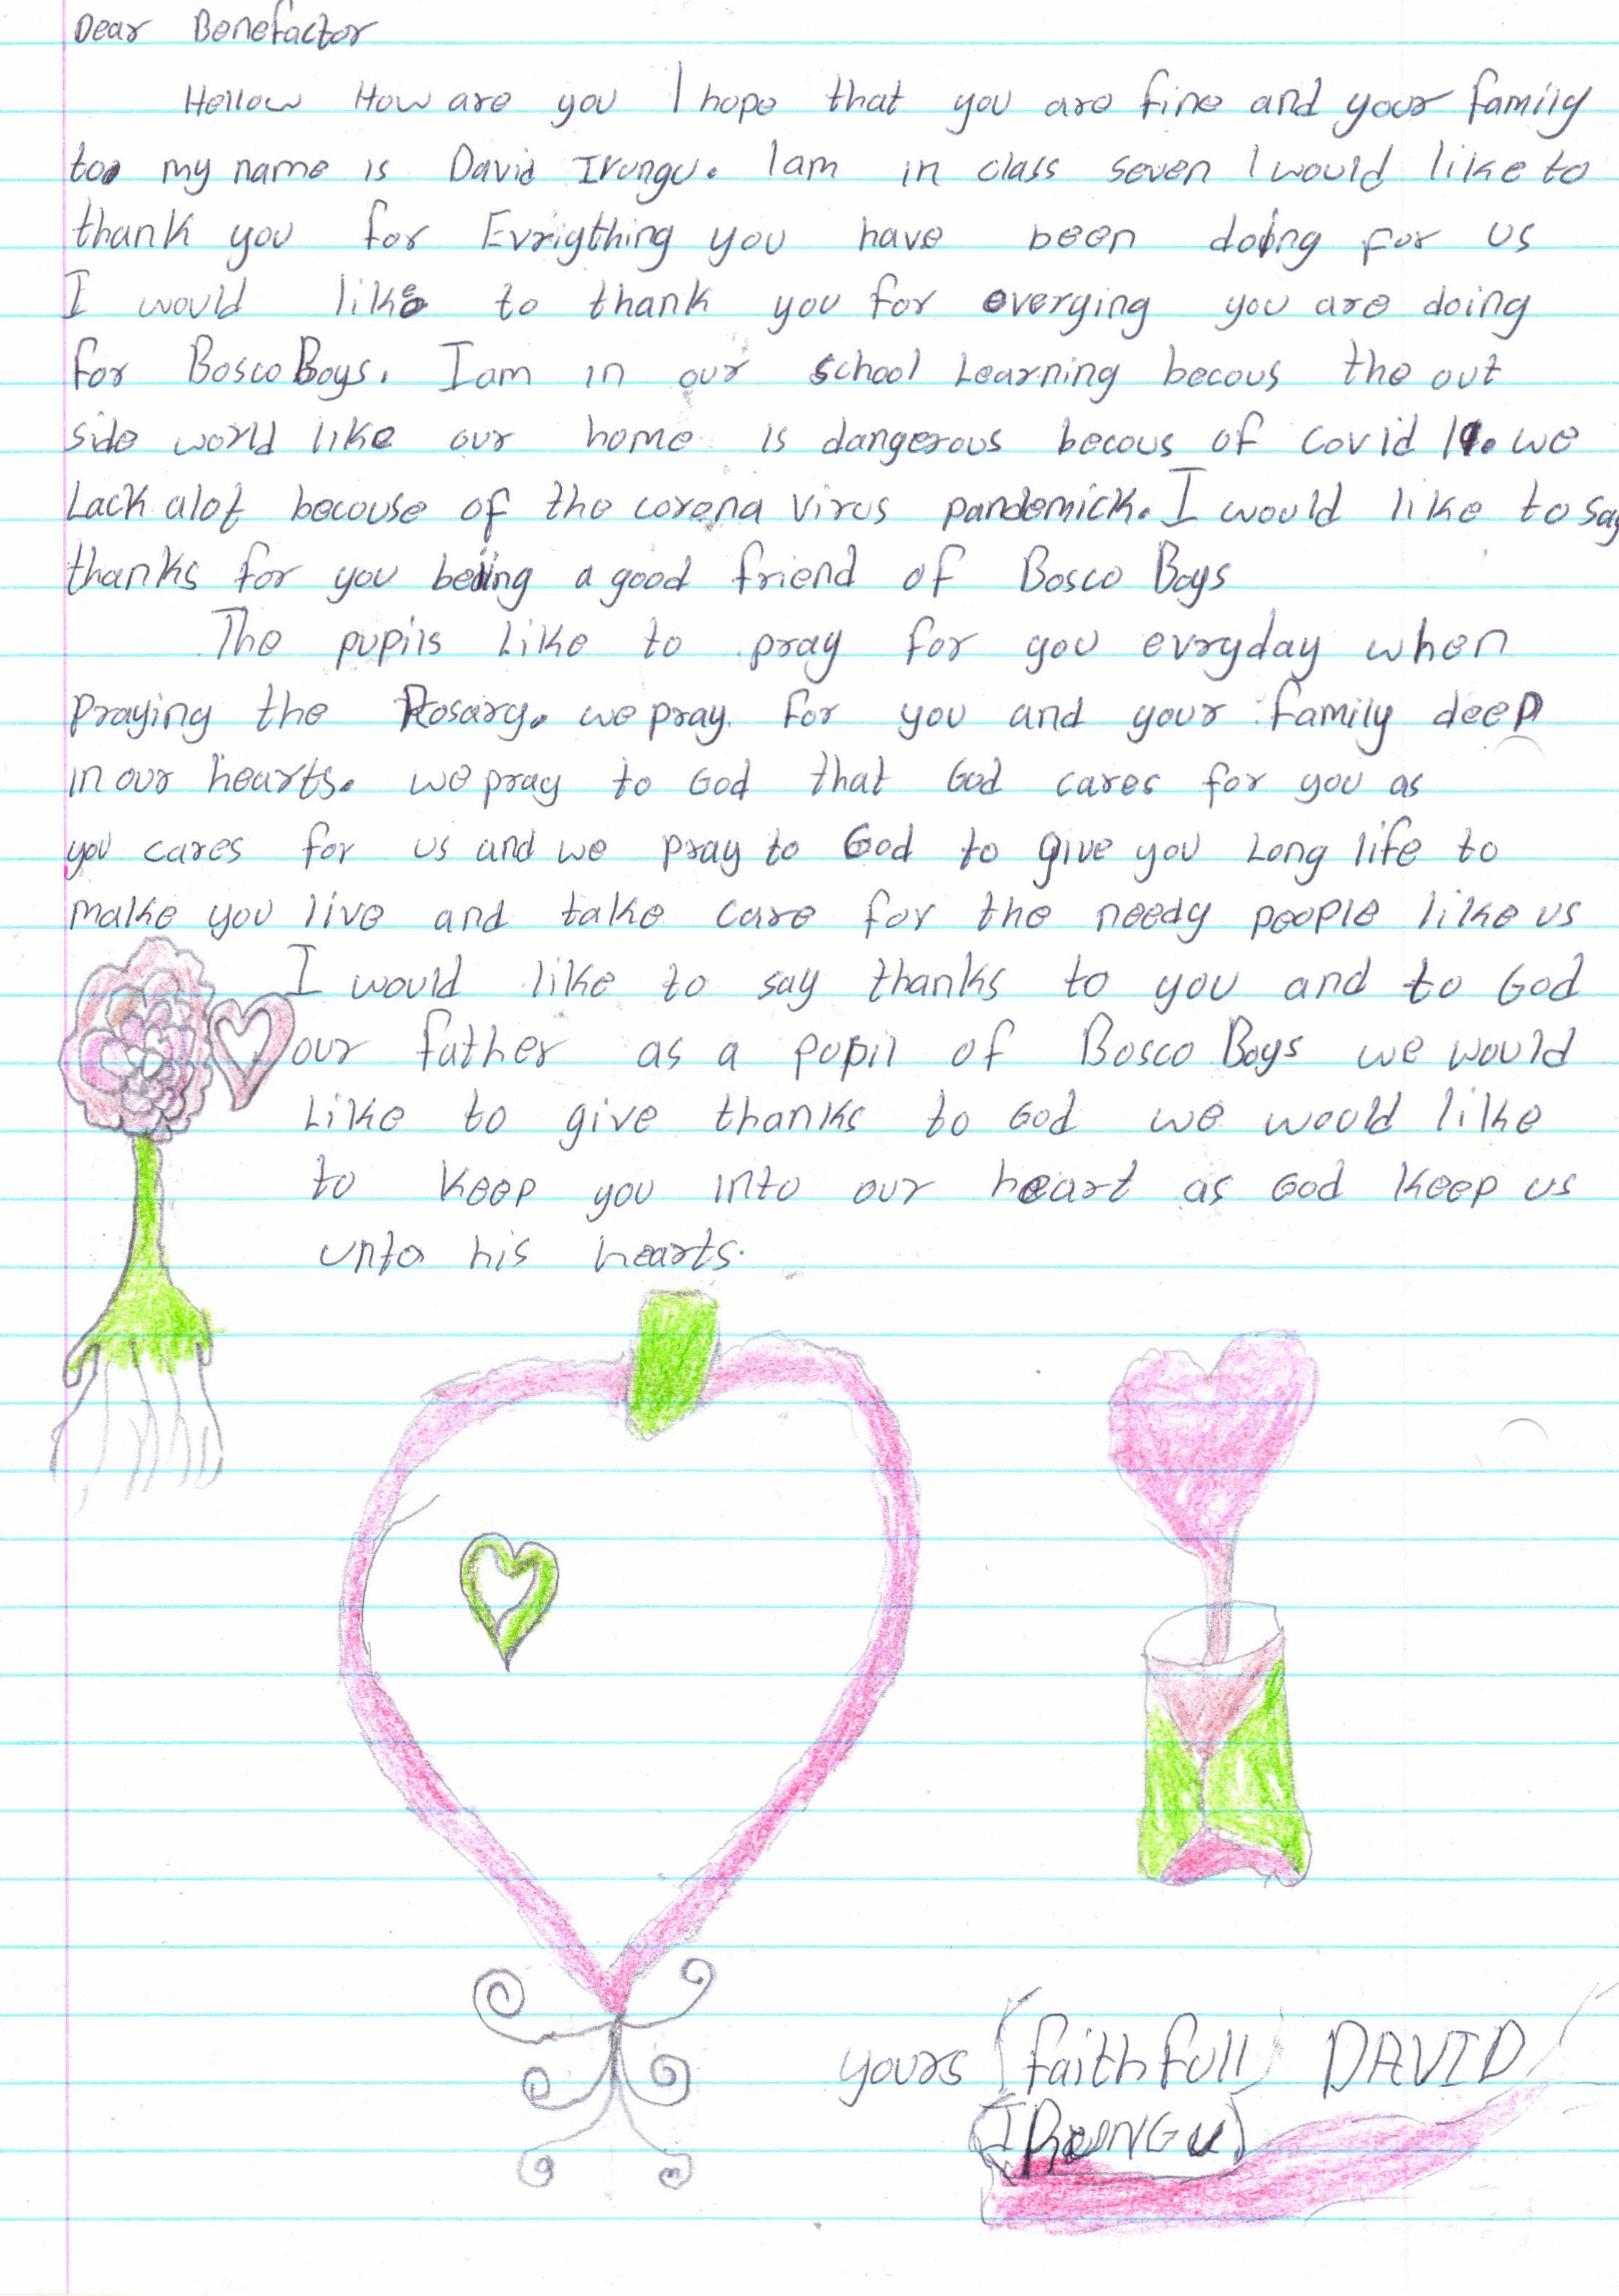 Dear Benefactor
Hellow How are you I hope that you are fine and your family
too my name is David Irungu. Iam in class seven I would like to
thank you for Evrigthing you have been doing for us
I would like to thank you for everying you are doing
for Bosco Boys. Iam in our school Learning becous the out
side world like our home is dangerous becous of covid 19. we
Lack alot becouse of the corona virus pandemick. I would like to say
thanks for you being a good friend of Bosco Boys
The pupils Like to pray for you evryday when
Praying the Rosary. we pray for you and your family deep
in our hearts. we pray to God that God cares for you as
you cares for us and we pray to God to give you Long life to
make you live and take care for the needy people like us
I would like to say thanks to you and to God
our father as a pupil of Bosco Boys we would
Like to give thanks to God we would like
to keep you into our heart as God keep us
unto his hearts.
yours (faithfull) DAVID
(IRUNGU)